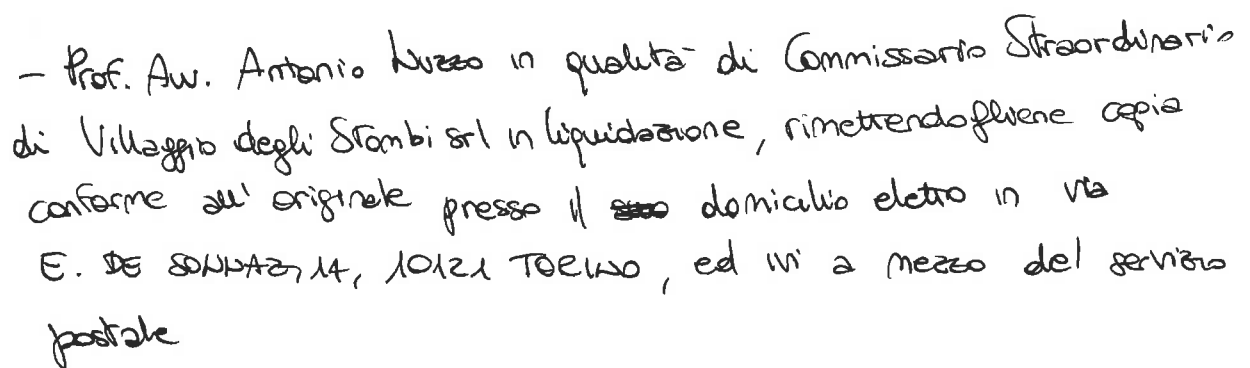 - Prof. Avv. Antonio Nuzzo in qualità di Commissario Straordinario
di Villaggio degli Stambi srl in liquidazione, rimettendogliene copia
conforme all'originale presso il domicilio eletto in via
E. DE SONNAZ, 14, 10121 TORINO, ed ivi a mezzo del servizio
postale